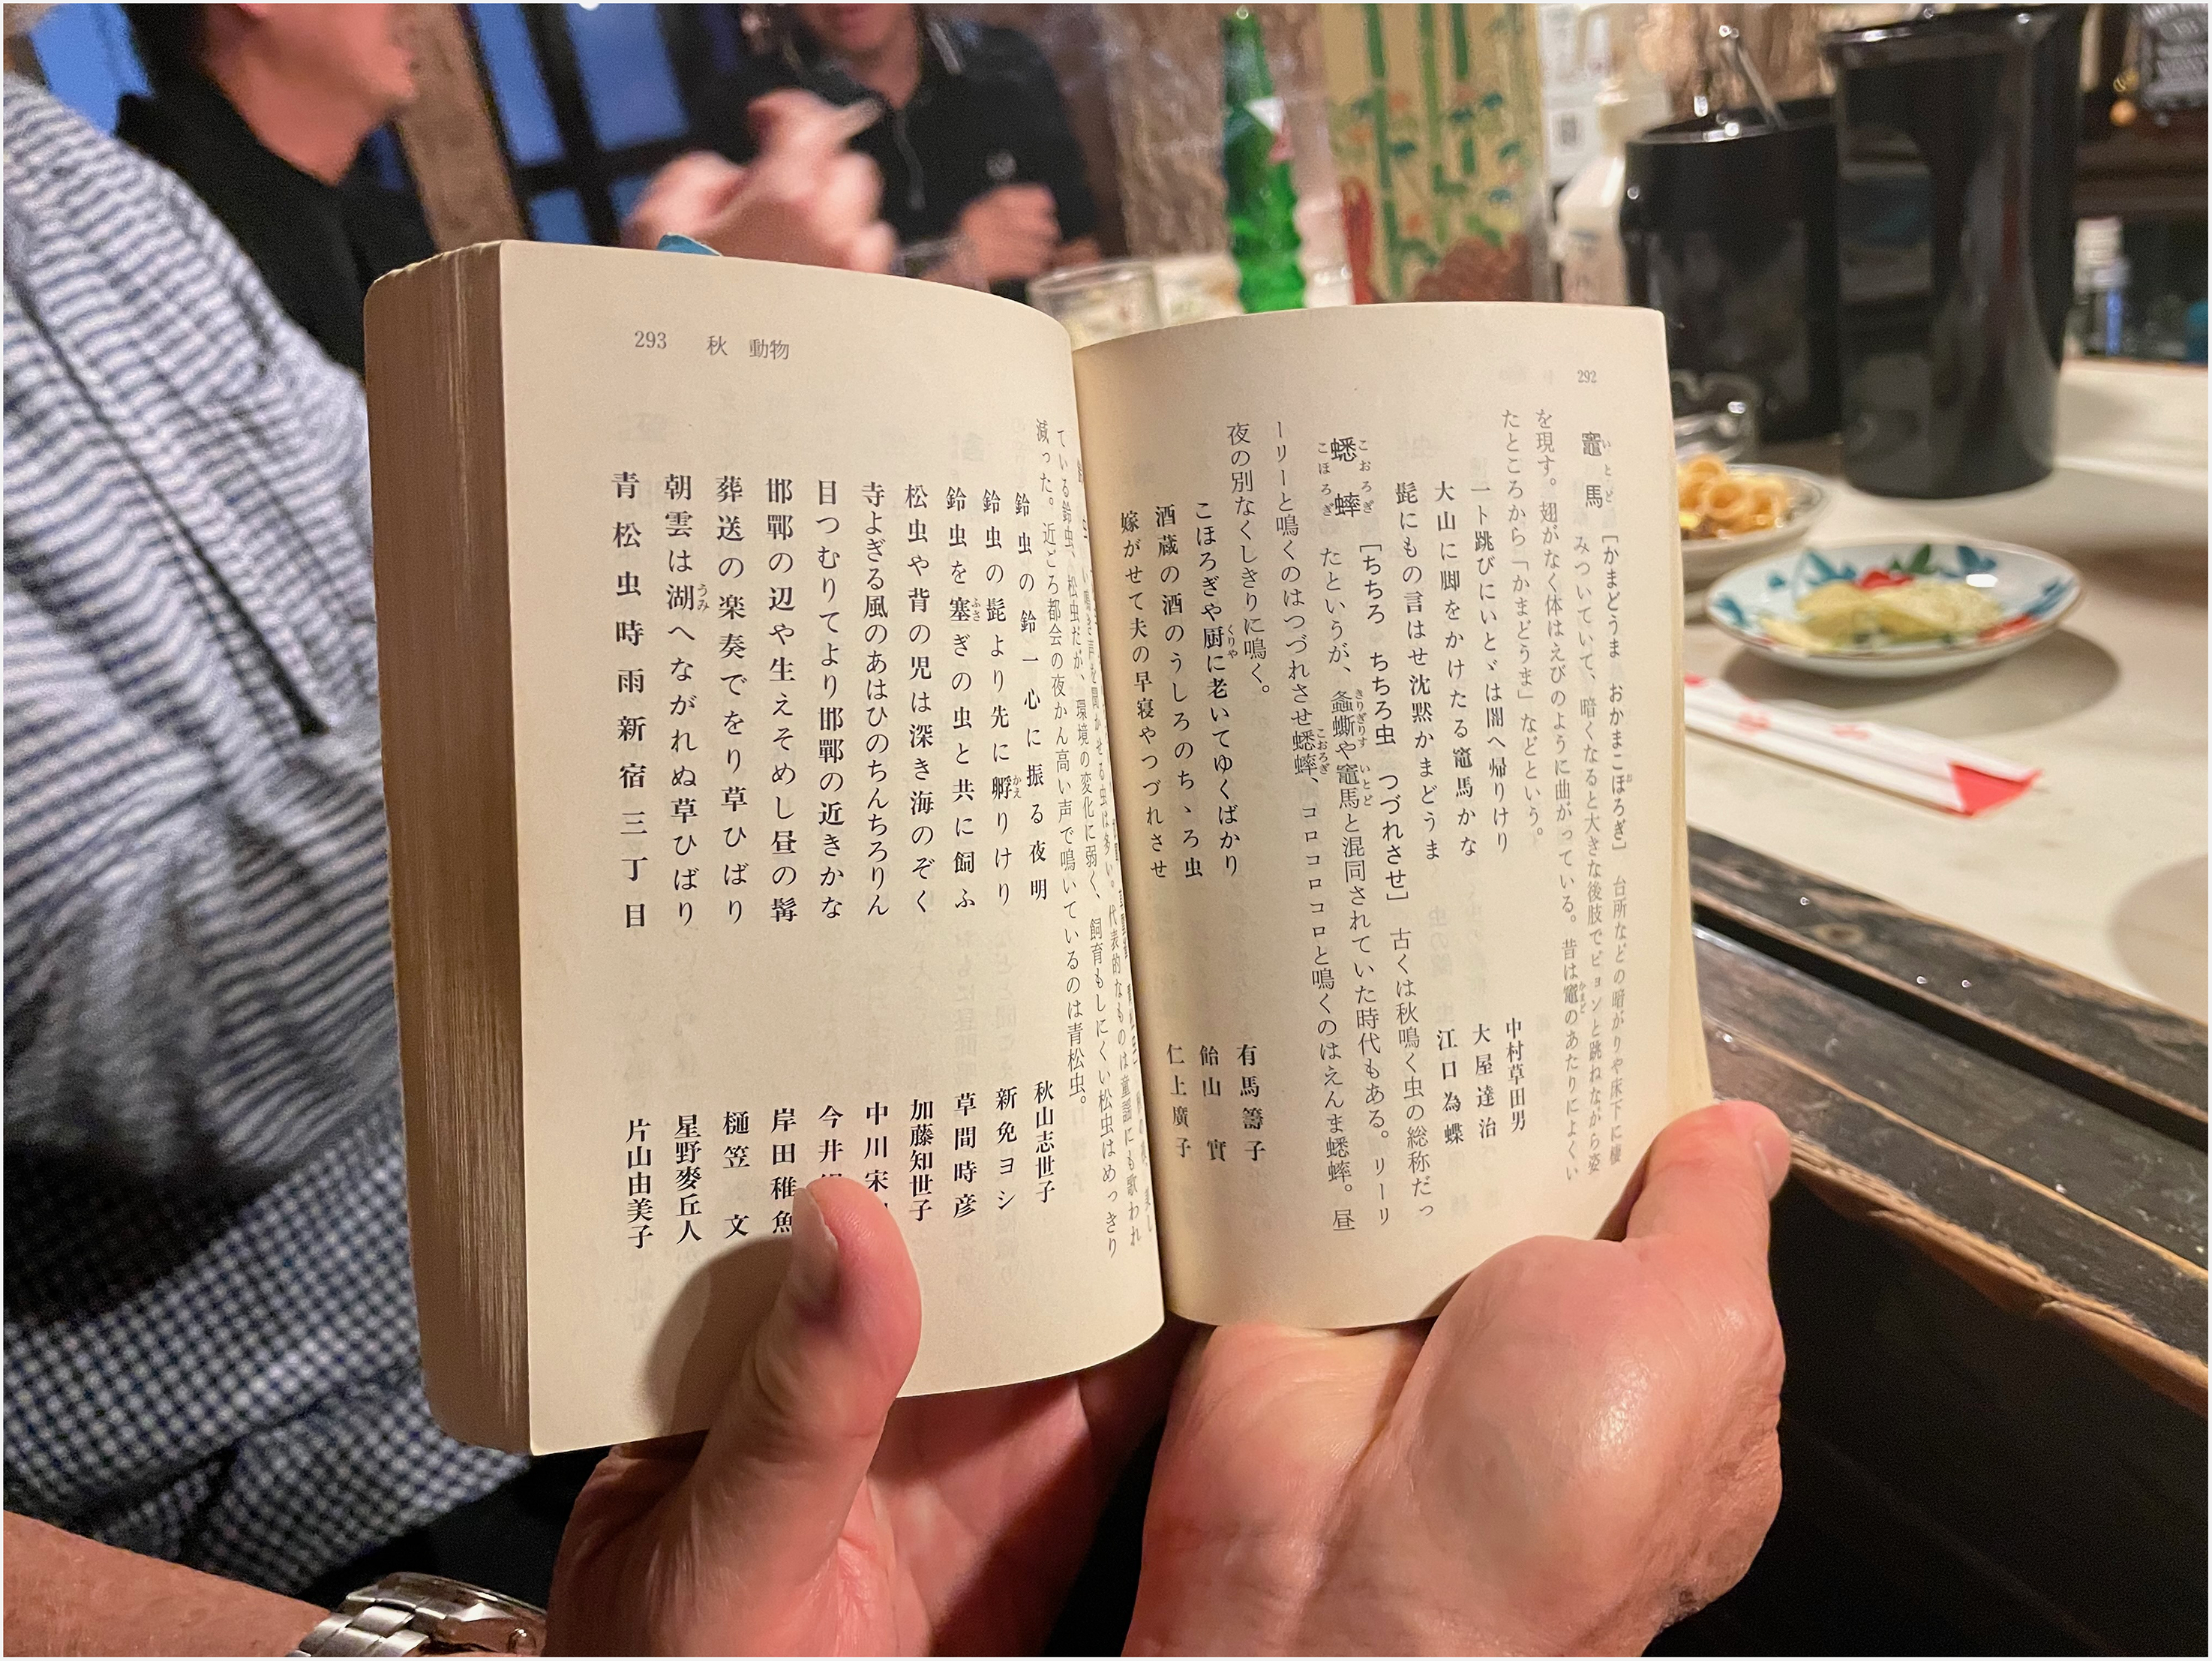 292
竈馬 いとど
［かまどうま　おかまこほろぎ］　台所などの暗がりや床下に棲
みついていて、暗くなると大きな後肢でピョンと跳ねながら姿
を現す。翅がなく体はえびのように曲がっている。昔は竈のあたりによくい
たところから「かまどうま」などという。
一ト跳びにいとゞは闇へ帰りけり　中村草田男
大山に脚をかけたる竈馬かな　大屋達治
髭にもの言はせ沈黙かまどうま　江口為蝶
蟋蟀 こおろぎ こほろぎ
［ちちろ　ちちろ虫　つづれさせ］　古くは秋鳴く虫の総称だっ
たというが、螽蟖や竈馬と混同されていた時代もある。リーリ
ーリーと鳴くのはつづれさせ蟋蟀、コロコロコロと鳴くのはえんま蟋蟀。昼
夜の別なくしきりに鳴く。
こほろぎや厨に老いてゆくばかり　有馬籌子
酒蔵の酒のうしろのちゝろ虫　飴山實
嫁がせて夫の早寝やつづれさせ　仁上廣子
293　秋　動物
ている鈴虫、松虫だが、環境の変化に弱く、飼育もしにくい松虫はめっきり
減った。近ごろ都会の夜かん高い声で鳴いているのは青松虫。
鈴虫の鈴一心に振る夜明　秋山志世子
鈴虫の髭より先に孵りけり　新免ヨシ
鈴虫を塞ぎの虫と共に飼ふ　草間時彦
松虫や背の児は深き海のぞく　加藤知世子
寺よぎる風のあはひのちんちろりん　中川宋
目つむりてより邯鄲の近きかな　今井
邯鄲の辺や生えそめし昼の髯　岸田稚魚
葬送の楽奏でをり草ひばり　樋笠文
朝雲は湖へながれぬ草ひばり　星野麥丘人
青松虫時雨新宿三丁目　片山由美子